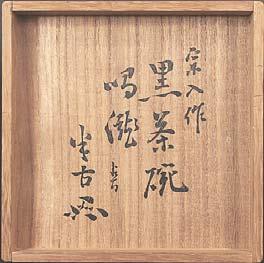 宗入作
黒茶碗
鳴瀧
半古